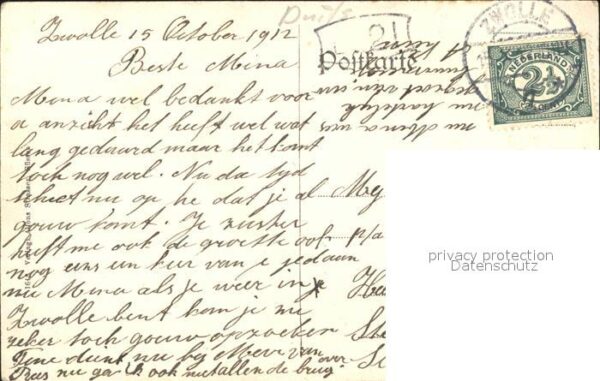 Zwolle 15 October 1912
Beste Mina
Mina wel bedankt voor
u anzicht het heeft wel wat
lang geduurd maar het komt
toch nog wel. Nu da tyd
schiet nu op he dat je al
gouw komt. Je zuster
heeft me ook de groette ook
nog eens een keer van je gedaan
nu Mina als je weer in
Zwolle bent kom je me
zeker toch gouw opzoeken
Tine dient nu by Meer van
over
nu ga ik ook met allen de brug.
Duits
21
Postkarte
nu Mina wees
nu hartelyk
gegroet van uw
ZWOLLE
NEDERLAND
2½
CENT
Mej
p/a
privacy protection
Datenschutz